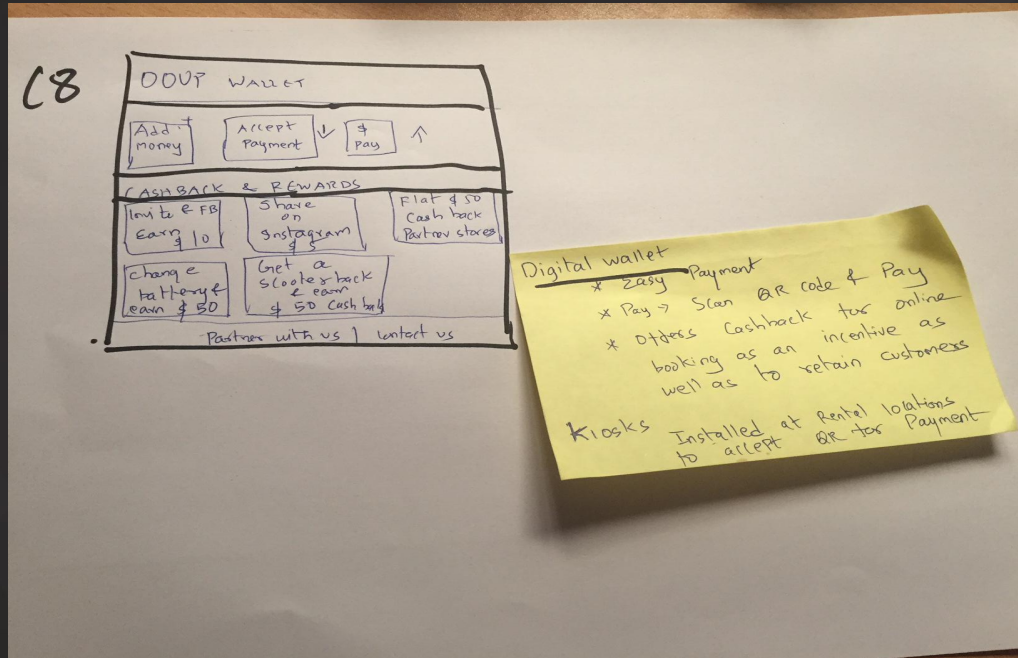 C8
OOVP WALLET
Add +
Money
Accept
Payment
$
Pay
CASHBACK & REWARDS
Invite & FB
Earn
$ 10
Share
on
Instagram
$ 5
Flat $ 50
Cash back
Partner stores
Change
battery &
earn $ 50
Get a
Scooter back
& earn
$ 50 Cash back
Partner with us | Contact us
Digital wallet
* Easy Payment
* Pay → Scan QR code & Pay
* Offers Cashback for online
booking as an incentive as
well as to retain customers
Kiosks Installed at Rental locations
to accept QR for Payment